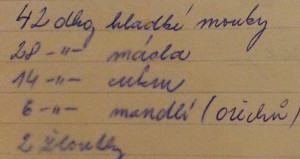 42 dkg hladké mouky
28 -"- másla
14 -"- cukru
6 -"- mandlí (ořechů)
2 žloutky